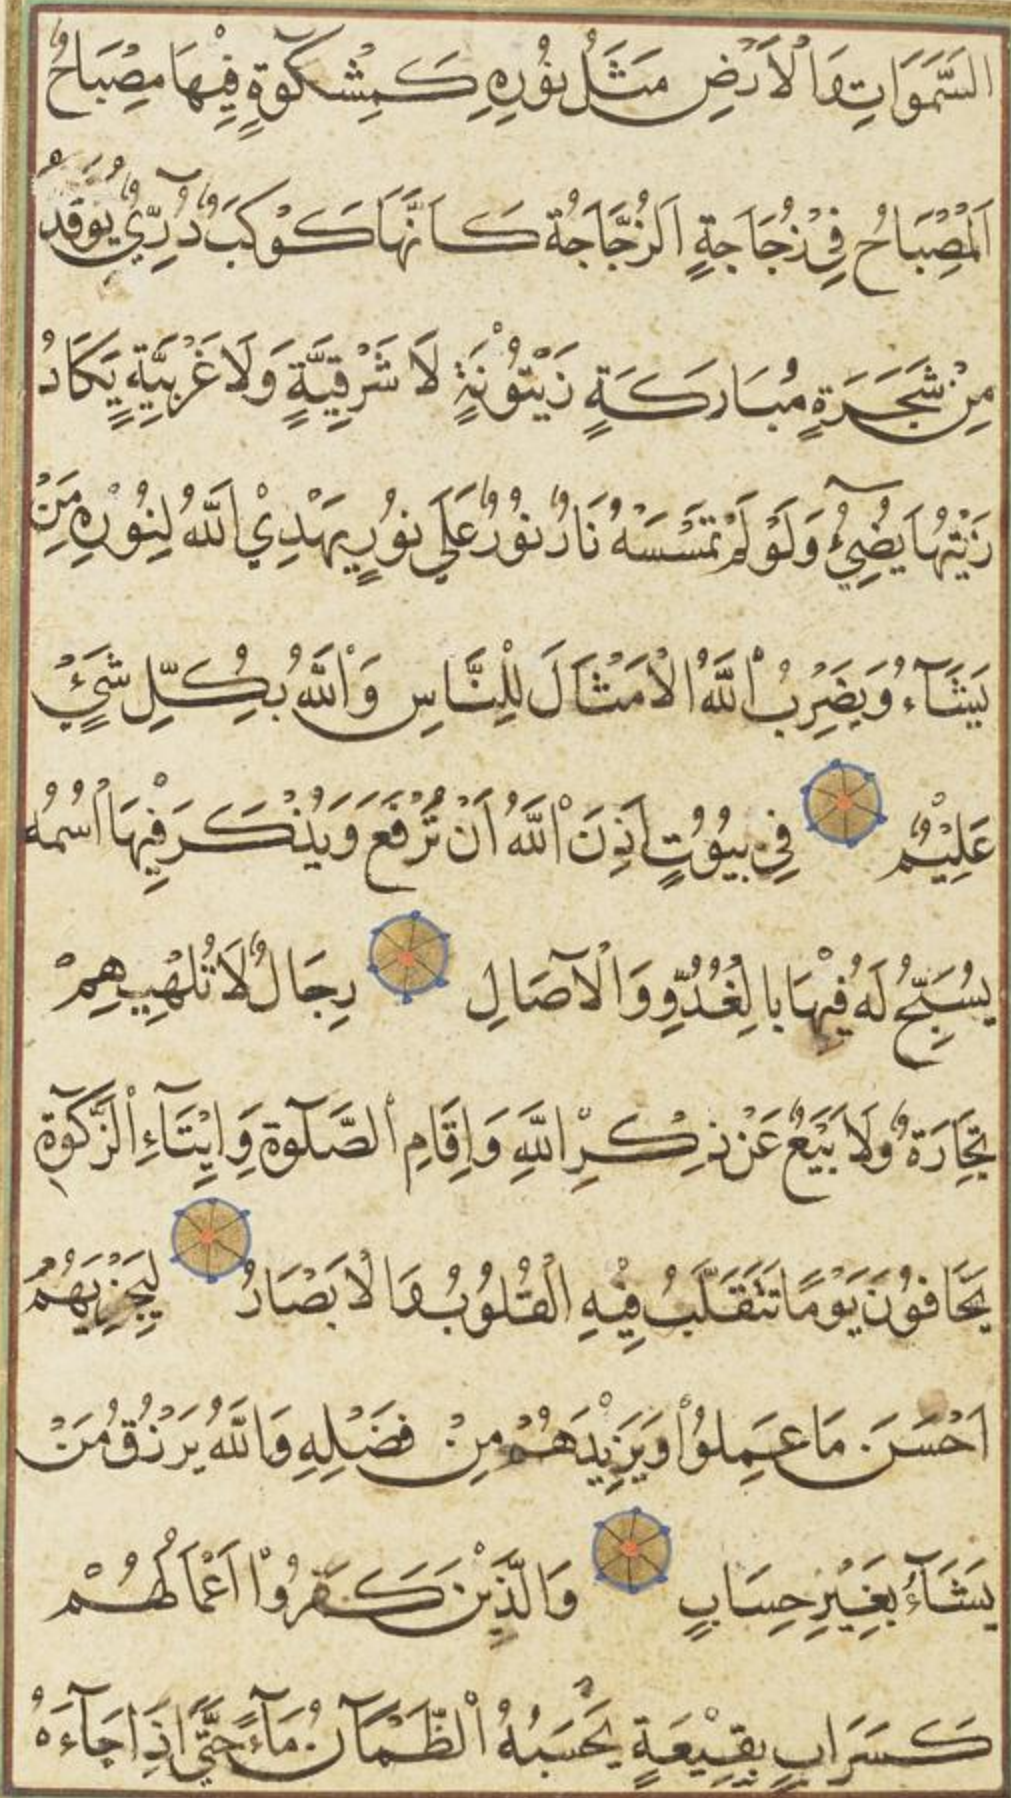 السَّمَوَاتِ وَالْاَرْضِ مَثَلُ نُوْرِهِ كَمِشْكٰوةٍ فِيْهَا مِصْبَاحٌ
اَلْمِصْبَاحُ فِيْ زُجَاجَةٍ اَلزُّجَاجَةُ كَاَنَّهَا كَوْكَبٌ دُرِّيٌّ يُوْقَدُ
مِنْ شَجَرَةٍ مُبَارَكَةٍ زَيْتُوْنَةٍ لَا شَرْقِيَّةٍ وَلَا غَرْبِيَّةٍ يَكَادُ
زَيْتُهَا يُضِيْٓءُ وَلَوْ لَمْ تَمْسَسْهُ نَارٌ نُوْرٌ عَلَى نُوْرٍ يَهْدِيْ اللّٰهُ لِنُوْرِهِ مَنْ
يَشَآءُ وَيَضْرِبُ اللّٰهُ الْاَمْثَالَ لِلنَّاسِ وَاللّٰهُ بِكُلِّ شَيْءٍ
عَلِيْمٌ فِيْ بُيُوْتٍ اَذِنَ اللّٰهُ اَنْ تُرْفَعَ وَيُذْكَرَ فِيْهَا اسْمُهُ
يُسَبِّحُ لَهُ فِيْهَا بِالْغُدُوِّ وَالْآصَالِ رِجَالٌ لَا تُلْهِيْهِمْ
تِجَارَةٌ وَلَا بَيْعٌ عَنْ ذِكْرِ اللّٰهِ وَاِقَامِ الصَّلٰوةِ وَاِيْتَآءِ الزَّكٰوةِ
يَخَافُوْنَ يَوْمًا تَتَقَلَّبُ فِيْهِ الْقُلُوْبُ وَالْاَبْصَارُ لِيَجْزِيَهُمُ
اَحْسَنَ مَا عَمِلُوْا وَيَزِيْدَهُمْ مِنْ فَضْلِهِ وَاللّٰهُ يَرْزُقُ مَنْ
يَشَآءُ بِغَيْرِ حِسَابٍ وَالَّذِيْنَ كَفَرُوْا اَعْمَالُهُمْ
كَسَرَابٍ بِقِيْعَةٍ يَحْسَبُهُ الظَّمْآنُ مَآءً حَتَّى اِذَا جَآءَهُ